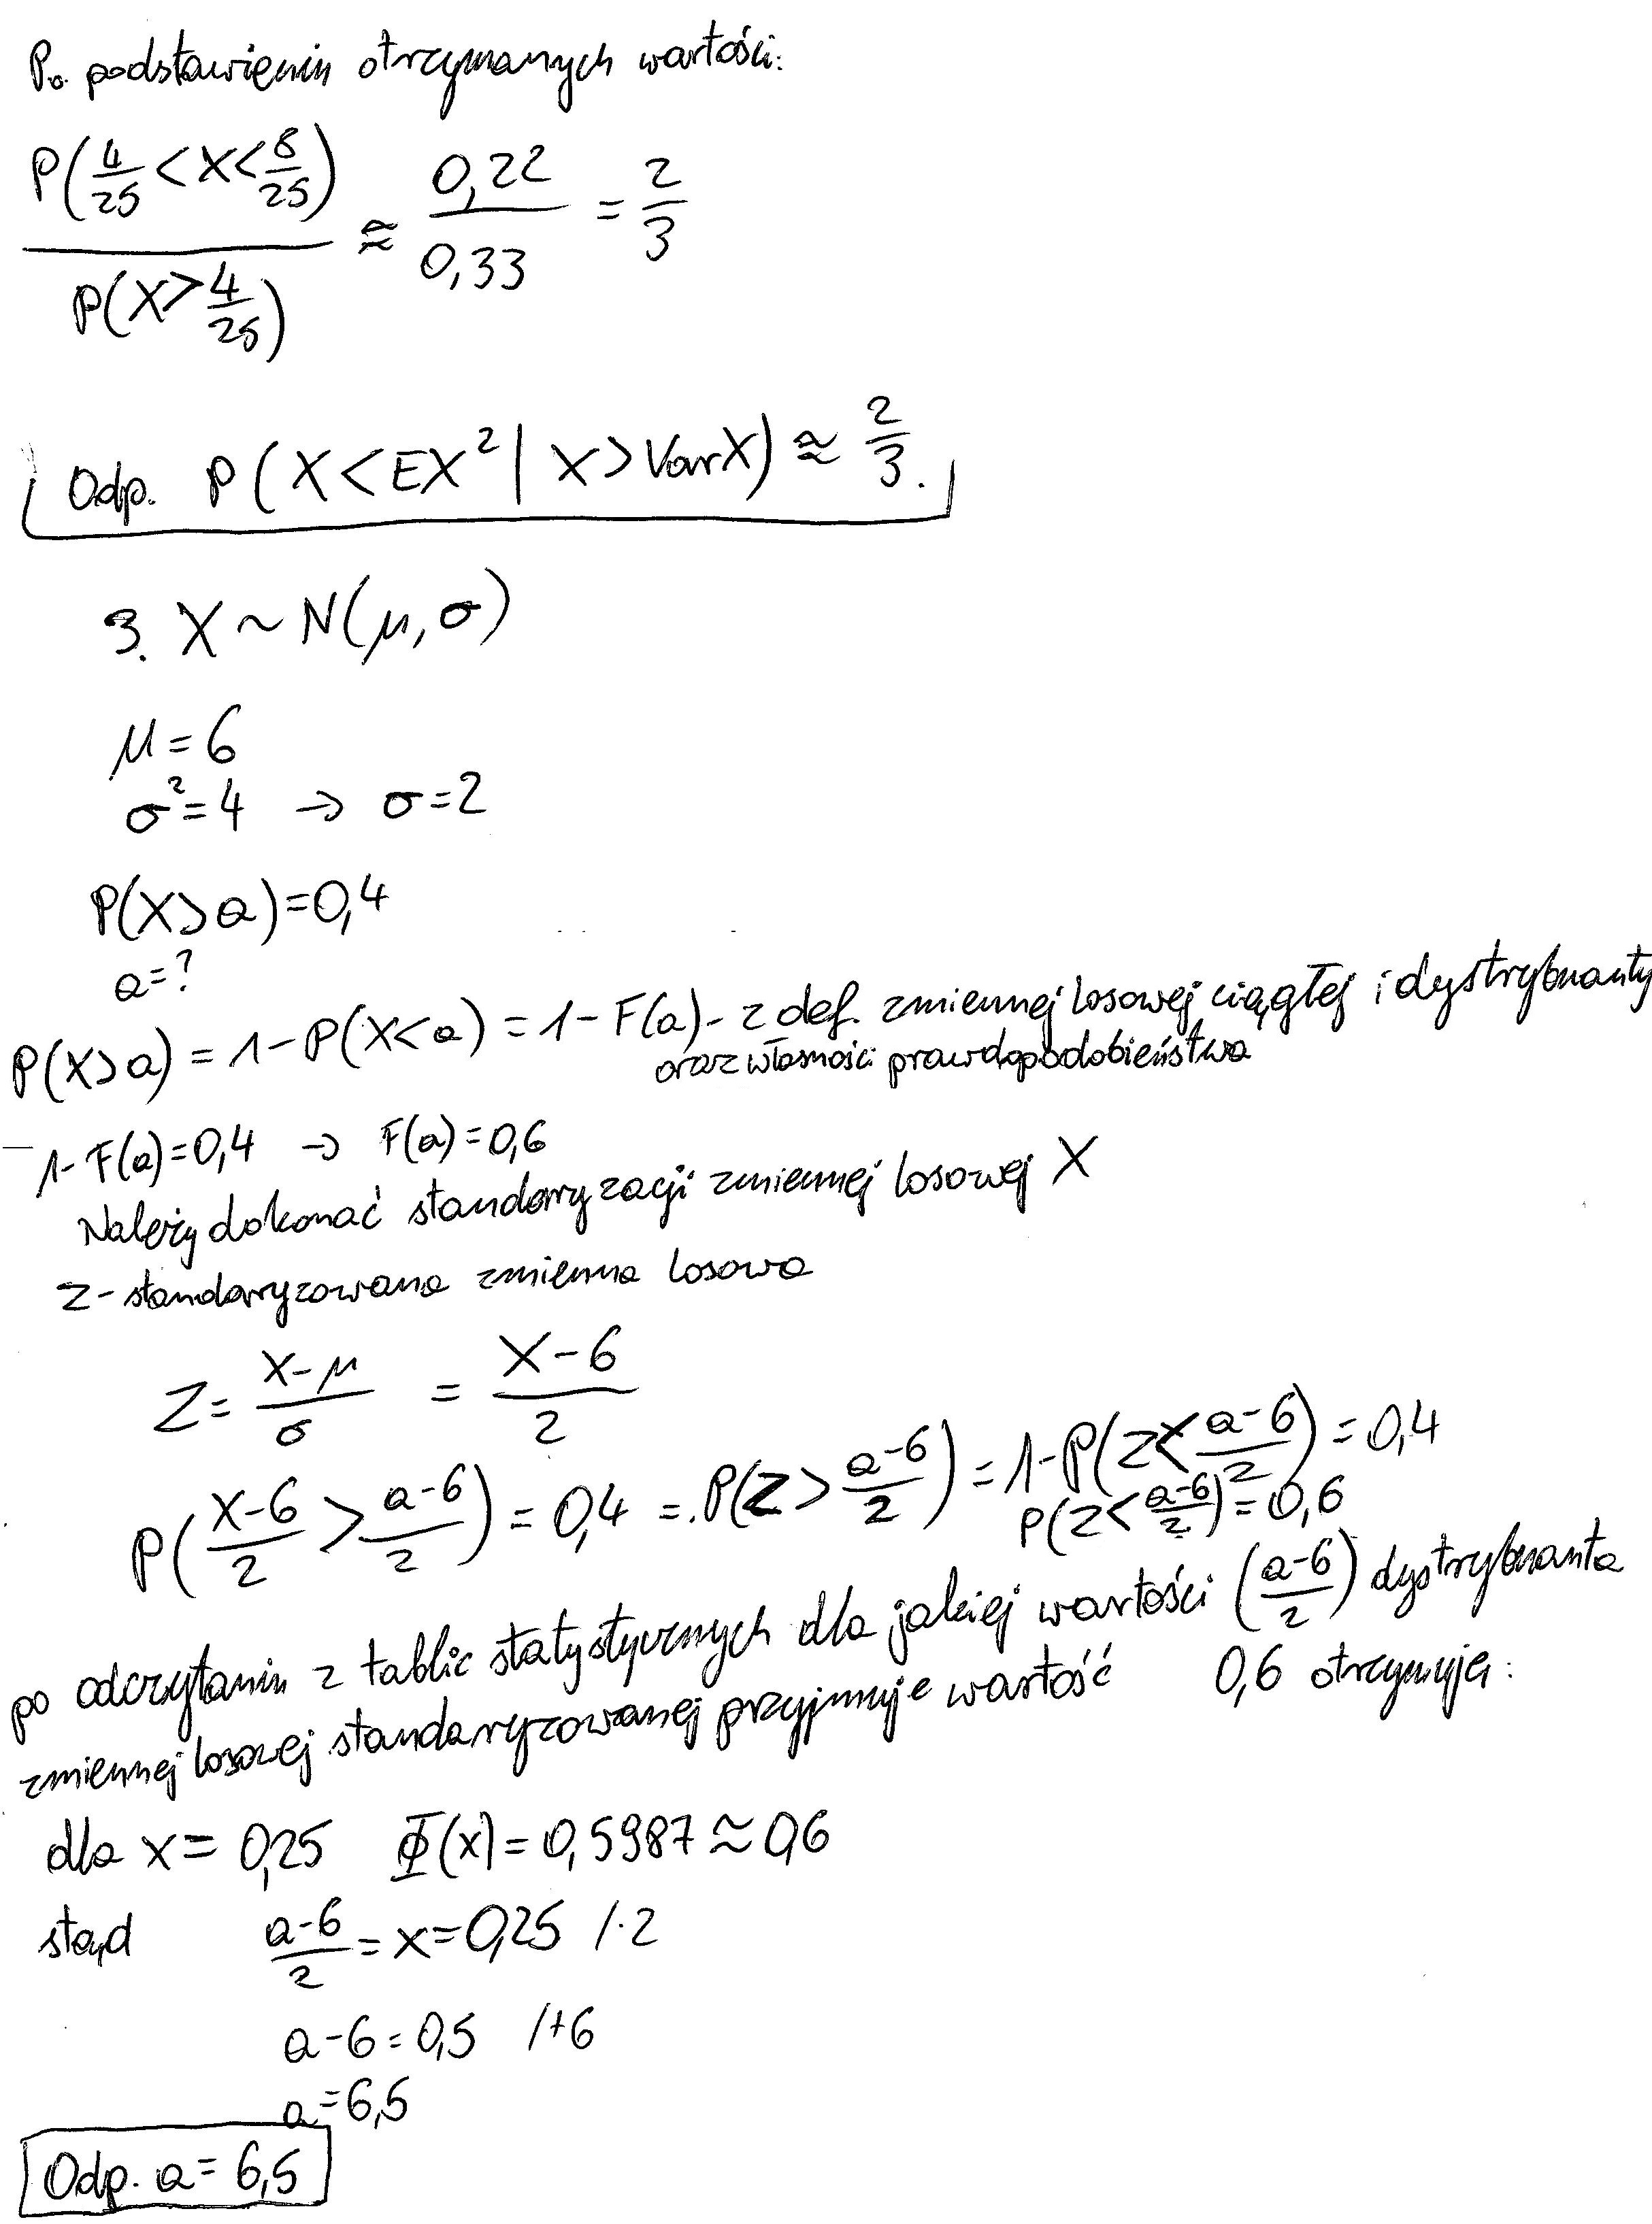 Po podstawieniu otrzymanych wartości:
P(4/25 < X < 8/25) / P(X > 4/25) ≈ 0,22 / 0,33 = 2/3
Odp. P(X < EX² | X > VarX) ≈ 2/3.
3. X ~ N(μ, σ)
μ = 6
σ² = 4 → σ = 2
P(X > a) = 0,4
a = ?
P(X > a) = 1 - P(X < a) = 1 - F(a) - z def. zmiennej losowej ciągłej i dystrybuanty
oraz własności prawdopodobieństwa
1 - F(a) = 0,4 → F(a) = 0,6
Należy dokonać standaryzacji zmiennej losowej X
Z - standaryzowana zmienna losowa
Z = (X - μ)/σ = (X - 6)/2
P((X - 6)/2 > (a - 6)/2) = 0,4 = P(Z > (a - 6)/2) = 1 - P(Z < (a - 6)/2) = 0,4
P(Z < (a - 6)/2) = 0,6
po odczytaniu z tablic statystycznych dla jakiej wartości ((a - 6)/2) dystrybuanta
zmiennej losowej standaryzowanej przyjmuje wartość 0,6 otrzymuję:
dla x = 0,25 Φ(x) = 0,5987 ≈ 0,6
stąd (a - 6)/2 = x = 0,25 /·2
a - 6 = 0,5 /+6
a = 6,5
Odp. a = 6,5